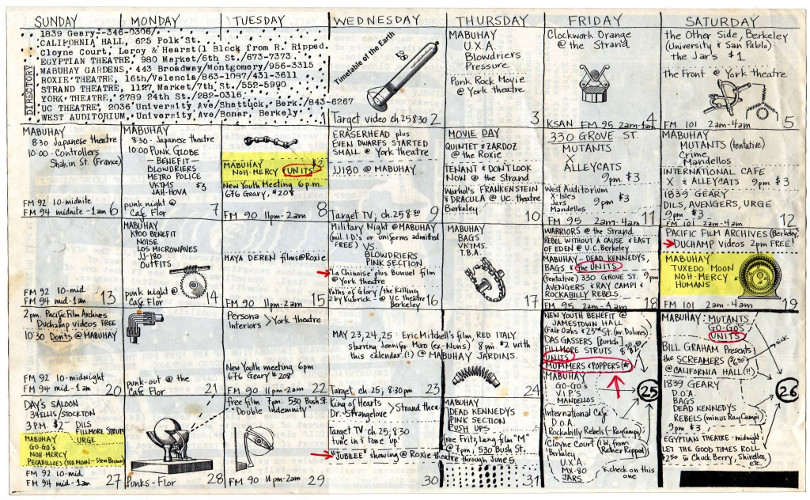 SUNDAY MONDAY TUESDAY WEDNESDAY THURSDAY FRIDAY SATURDAY
DIRECTORY
1839 Geary--346-0306/
CALIFORNIA HALL, 625 Polk St.
Cloyne Court, Leroy & Hearst(1 Block from R. Ripped.
EGYPTIAN THEATRE, 980 Market/6th St./673-7373
MABUHAY GARDENS, 443 Broadway/Montgomery/956-3315
ROXIE THEATRE, 16th/Valencia/863-1087/431-3611
STRAND THEATRE, 1127 Market/7th St./552-5990
YORK THEATRE, 2789 24th St./282-0316
UC THEATRE, 2036 University Ave/Shattuck, Berk./843-6267
WEST AUDITORIUM, University Ave/Bonar, Berkely
Timetable of the Earth
Target video ch.25 8:30
2
MABUHAY
U.X.A
Blowdriers
Pressure
Punk Rock Movie
@ York theatre
3
Clockwork Orange
@ the Strand
KSAN FM 95 2am-
4
the Other Side, Berkeley
(University & San Pablo)
the Jar's $1.
the Front @ York theatre
FM 101 2am-4am
5
MABUHAY
8:30 Japanese theatre
10:00 - Controllers
Shakin St. (France)
FM 92 10-midnite
FM 94 midnite-1am
6
MABUHAY
8:30 Japanese theatre
10:00 PUNK GLOBE
-BENEFIT-
BLOWDRIERS
METRO POLICE
VKTMS $3
JAH-HOVA
punk night @
Cafe Flor
7
MABUHAY $2
NOH-MERCY UNITS
New Youth Meeting 6p.m.
676 Geary, #208
FM 90 11pm-2am
8
ERASERHEAD plus
EVEN DWARFS STARTED
SMALL @ York theatre
JJ180 @ MABUHAY
Target TV, ch.25 8:30
9
MOVIE DAY
QUINTET & ZARDOZ
@ the Roxie
TENANT & DON'T LOOK
NOW @ the Strand
Warhol's FRANKENSTEIN
& DRACULA @ UC. theatre
Berkeley
10
330 GROVE ST.
MUTANTS
X
ALLEYCATS
9pm $3.
West Auditorium
X-Isles
Jars
Mandellos
FM 95 2am-4am
11
MABUHAY
MUTANTS (tentative)
Crime,
Mandellos
INTERNATIONAL CAFE
X & ALLEYCATS 9pm $3
1839 GEARY
DILS, AVENGERS, URGE
9pm $3
FM 101 2am-4am
12
FM 92 10-mid
FM 94 mid-1am
13
MABUHAY
XPOO BENEFIT
NOISE
LOS MICROWAVES
JJ-180
OUTFITS
punk night @
Cafe Flor
14
MAYA DEREN films @ Roxie
FM 90 11pm-2am
15
Military Night @ MABUHAY
(mil. I.D.'s or uniforms admitted
FREE) VS
BLOWDRIERS
PINK SECTION
La Chinoise plus Bunuel film
@ York theatre
Paths of Glory / the Killing
2 by Kubrick - @ UC theatre
Berkeley
16
MABUHAY
BAGS
VKTMS.
T.B.A
17
WARRIORS @ the Strand
REBEL WITHOUT A CAUSE & EAST
OF EDEN @ U.C. Berkeley
MABUHAY DEAD KENNEDYS
BAGS & the UNITS
(tentative) 330 GROVE ST. 9pm
AVENGERS & RAY CAMPI &
ROCKABILLY REBELS.
18
PACIFIC FILM ARCHIVES (Berkeley)
DUCHAMP Videos 2pm FREE!
MABUHAY
TUXEDO MOON
NOH-MERCY &
HUMANS
FM 101 2am-4am
19
2pm. Pacific Film Archives
Duchamp videos FREE
10:30 Donts @ MABUHAY
FM 92 10-midnight
FM 94 mid-1am
20
punk-out @ the
Cafe Flor
21
Persona
Interiors >York theatre
New Youth meeting 6pm
676 Geary #208
FM 90 11pm-2am
22
MAY 23,24,25 : Eric Mitchell's film, RED ITALY
starring Jennifer Miro (ex-Nuns) 8pm $2 with
this calendar (!) @ MABUHAY JARDINS.
Target, ch. 25, 8:30pm
23
24
NEW YOUTH BENEFIT @
JAMESTOWN HALL
(Fair Oaks & 25th ST. (nr. Dolores)
DAS GASSERS (Zurich)
FILLMORE STRUTS
UNITS
MUMMERS & POPPERS
MABUHAY
GO-GO'S
V.I.P'S
MANDELLOS
International Cafe
D.O.A
Rockabilly Rebels (-RayCampi)
Cloyne Court (1 blk from
Berkeley Rather Ripped)
U.X.A
MX-80
JARS
check on this
one
25
MABUHAY: MUTANTS
GO-GO'S
UNITS
BILL GRAHAM Presents
the SCREAMERS
@ CALIFORNIA HALL (!!)
1839 GEARY
D.O.A
BAGS
DEAD KENNEDYS
REBELS (minus Ray Campi)
9pm $3
EGYPTIAN THEATRE - midnight
LET THE GOOD TIMES ROLL
Chuck Berry, Shirelles,
etc.
26
DAY'S SALOON
34 ELLIS/STOCKTON
3PM. $2 DILS
FILLMORE STRUTS
URGE
MABUHAY
GO-GO's
NOH-MERCY
PECADILLOES
FM 92 10-mid.
FM 94 mid-1am
27
Punks-Flor
28
free film 7pm 530 Bush St.
"Double Indemnity"
FM 90 11pm-2am
29
King of Hearts
Dr. Strangelove >Strand Thea
Target TV ch.25, 8:30
'tune in & tune up'
"JUBILEE" showing @ Roxie theatre through June 5
30
MABUHAY
DEAD KENNEDYS
PINK SECTION
PUSH UPS
free Fritz Lang film "M"
@ 7pm, 530 Bush St.
31